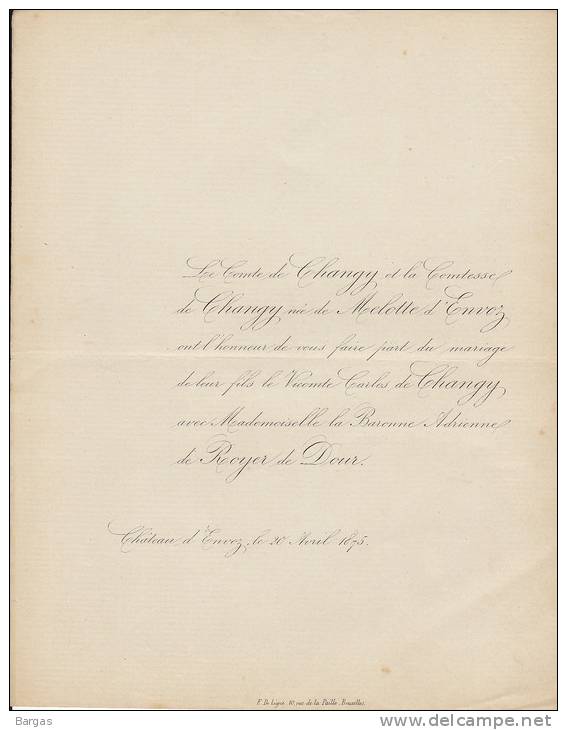 Le Comte de Changy et la Comtesse
de Changy née de Melotte d'Envoz
ont l'honneur de vous faire part du mariage
de leur fils le Vicomte Carlos de Changy
avec Mademoiselle la Baronne Adrienne
de Royer de Dour.
Château d'Envoz, le 20 Avril 1875.
F. De Ligne 10, rue de la Paille, Bruxelles.
Bargas
delcampe.net